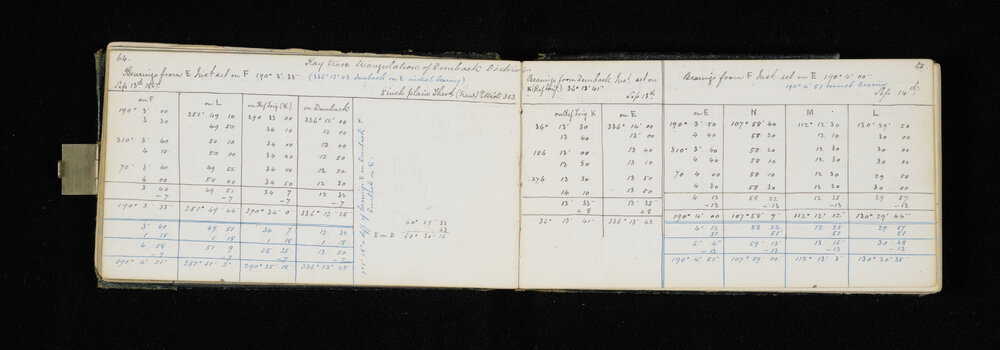 64.
Ray trace Triangulation of Dunback District
Bearings from E Inst. set on F 190° 3' 33"
(336° 13' 43" Dunback on E initial bearing)
Sep 13th
5 inch plain Theo. (New) 353
on F on L on Ref Trig (K) on Dunback
190° 3' 00 251° 49 10 290° 33 00 336° 12' 00
3 30 49 50 34 10 12 00
310° 3' 40 50 10 34 00 13 00
4 10 50 00 34 40 12 50
70° 3' 40 49 55 34 00 13 00
4 00 50 00 34 50 12 30
3 40 49 51 34 7 12 32
-7 -7 -7 -7
190° 3' 33 251° 49' 44 290° 34' 0 336° 12 25
3' 40 49 51 34 7 12 32
1 18 1 18 1 18 1 18
4 58 51 9 35 25 13 50
-7 -7 -7 -7
190° 4' 51" 251° 51' 2" 290° 35' 18 336° 13' 43"
1' 18" Diff of bearings E on Dunback &
Dunback on E.
E on D
60° 29' 33
43
60° 30' 16
Bearings from Dunback Inst. set on
K (Ref Trig) 36° 13' 41"
Sep 13th
on Ref Trig K on E
36° 13' 30 336° 14' 00
13 40 13 30
156 13' 00 13 40
13 30 13 10
276 13' 30 13 50
14 10 13 50
13' 33" 13' 35"
+8 +8
36° 13' 41" 336° 13' 43"
65.
Bearings from F Inst. set on E 190° 4' 00"
190° 4' 51 correct bearing
Sep 14th
on E N M L
190° 3' 50 107° 58' 40 112° 12' 30 130° 29' 50
4 40 58 20 12 10 30 00
310° 3' 40 58 20 12 30 30 00
4 40 58 10 12 30 30 00
70 4 00 58 30 12 30 29 50
4 30 58 30 12 20 30 00
4 13 58 22 12 25 29 57
-13 -13 -13 -13
190° 4' 00 107° 58' 9" 112° 12' 12" 130° 29' 44"
4' 13 58 22 12 25 29 57
51 51 51 51
5' 4" 59' 13" 13 16 30 48
-13 -13 -13 -13
190° 4' 51" 107° 59' 00 112° 13' 3" 130° 30' 35"